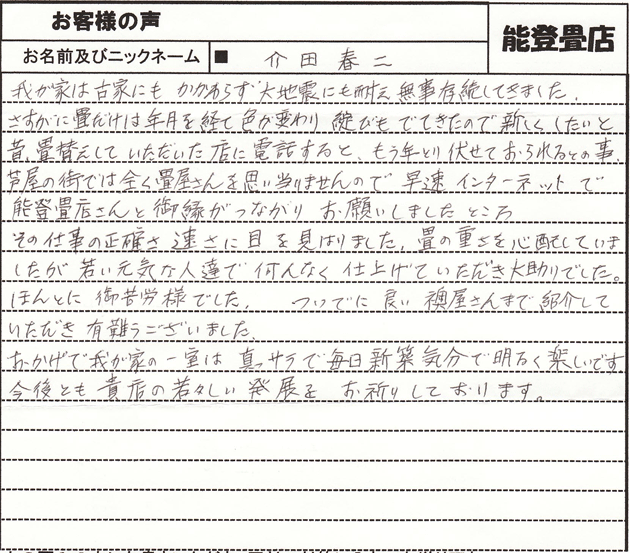 お客様の声
能登畳店
お名前及びニックネーム ■ 介田春二
我が家は古家にもかかわらず大地震にも耐え無事存続してきました.
さすがに畳だけは年月を経て色が変わり綻びもでてきたので新しくしたいと
昔、畳替えしていただいた店に電話すると、もう年とり伏せておられるとの事、
芦屋の街では全く畳屋さんを思い当りませんので早速インターネットで
能登畳店さんと御縁がつながりお願いしましたところ
その仕事の正確さ速さに目を見はりました. 畳の重さを心配していま
したが若い元気な人達で何んなく仕上げていただき大助りでした。
ほんとに御苦労様でした. ついでに良い襖屋さんまで紹介して
いただき有難うございました.
おかげで我が家の一室は真っサラで毎日新築気分で明るく楽しいです
今後とも貴店の若々しい発展をお祈りしております。